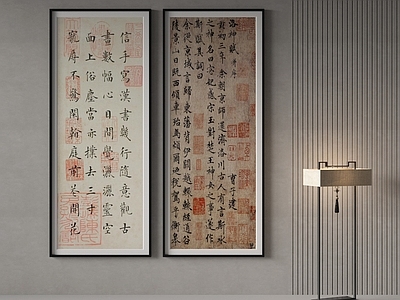 信手寫漢書幾行隨意觀古
畫數幅心目間覺灑灑靈空
面上俗塵當亦撲去三寸
寵辱不驚閑看庭前花開
洛神賦 并序
曹子建
黃初三年余朝京師還濟洛川古人有言斯水
之神名曰宓妃感宋玉對楚王神女之事遂作
斯賦其詞曰
余從京域言歸東藩背伊闕越轘轅經通谷
陵景山日既西傾車殆馬煩爾迺稅駕乎蘅皋